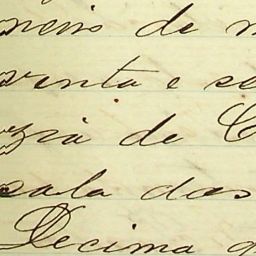 neiro de n
venta e se
zia de C
sala das
Decima q